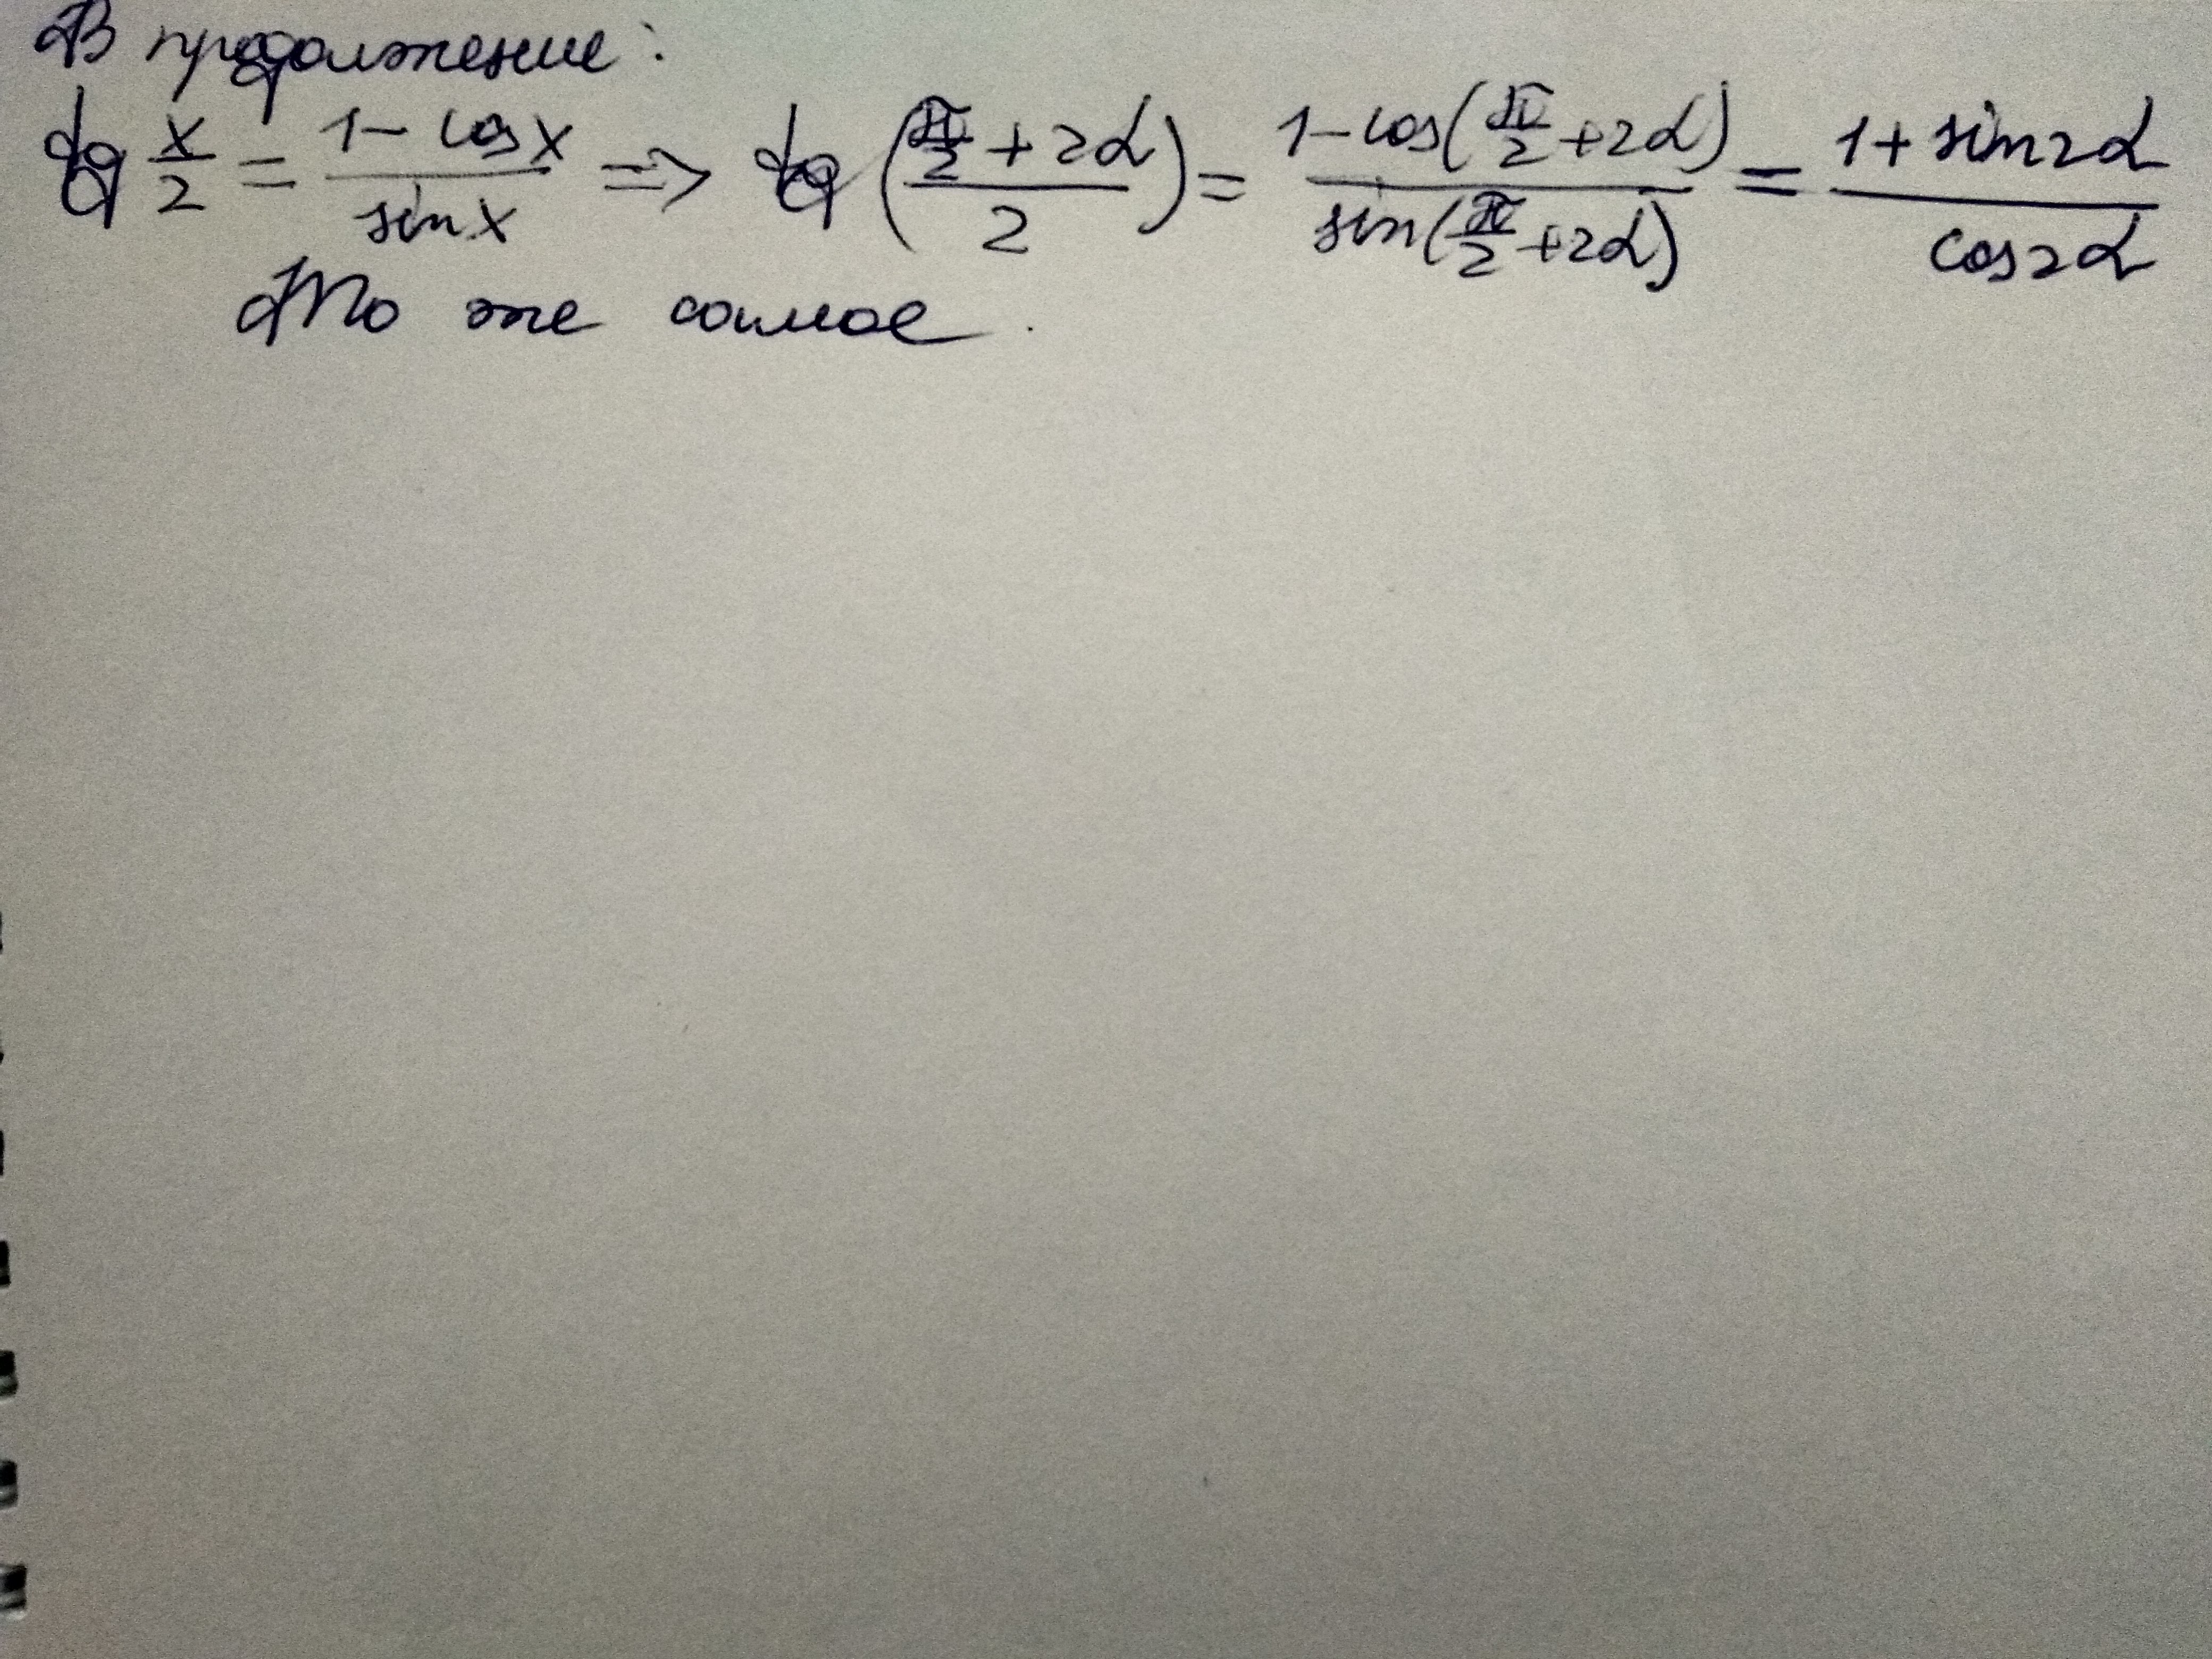 В продолжение:
tg x/2 = (1 - cos x)/(sin x) => tg ((π/2 + 2α)/2) = (1 - cos(π/2 + 2α))/(sin(π/2 + 2α)) = (1 + sin 2α)/(cos 2α)
То же самое.